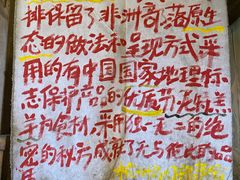 排保留了非洲部落原生
态的做法和呈现方式采
用的有中国国家地理标
志保护产品的优质
羊为食材,采用独一无二的绝
密的秘方成就了无与伦比的品